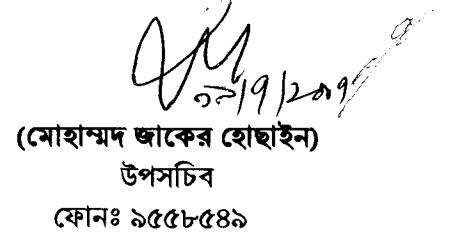 (মোহাম্মদ জাকের হোছাইন)
উপসচিব
ফোনঃ ৯৫৫৮৫৪৯